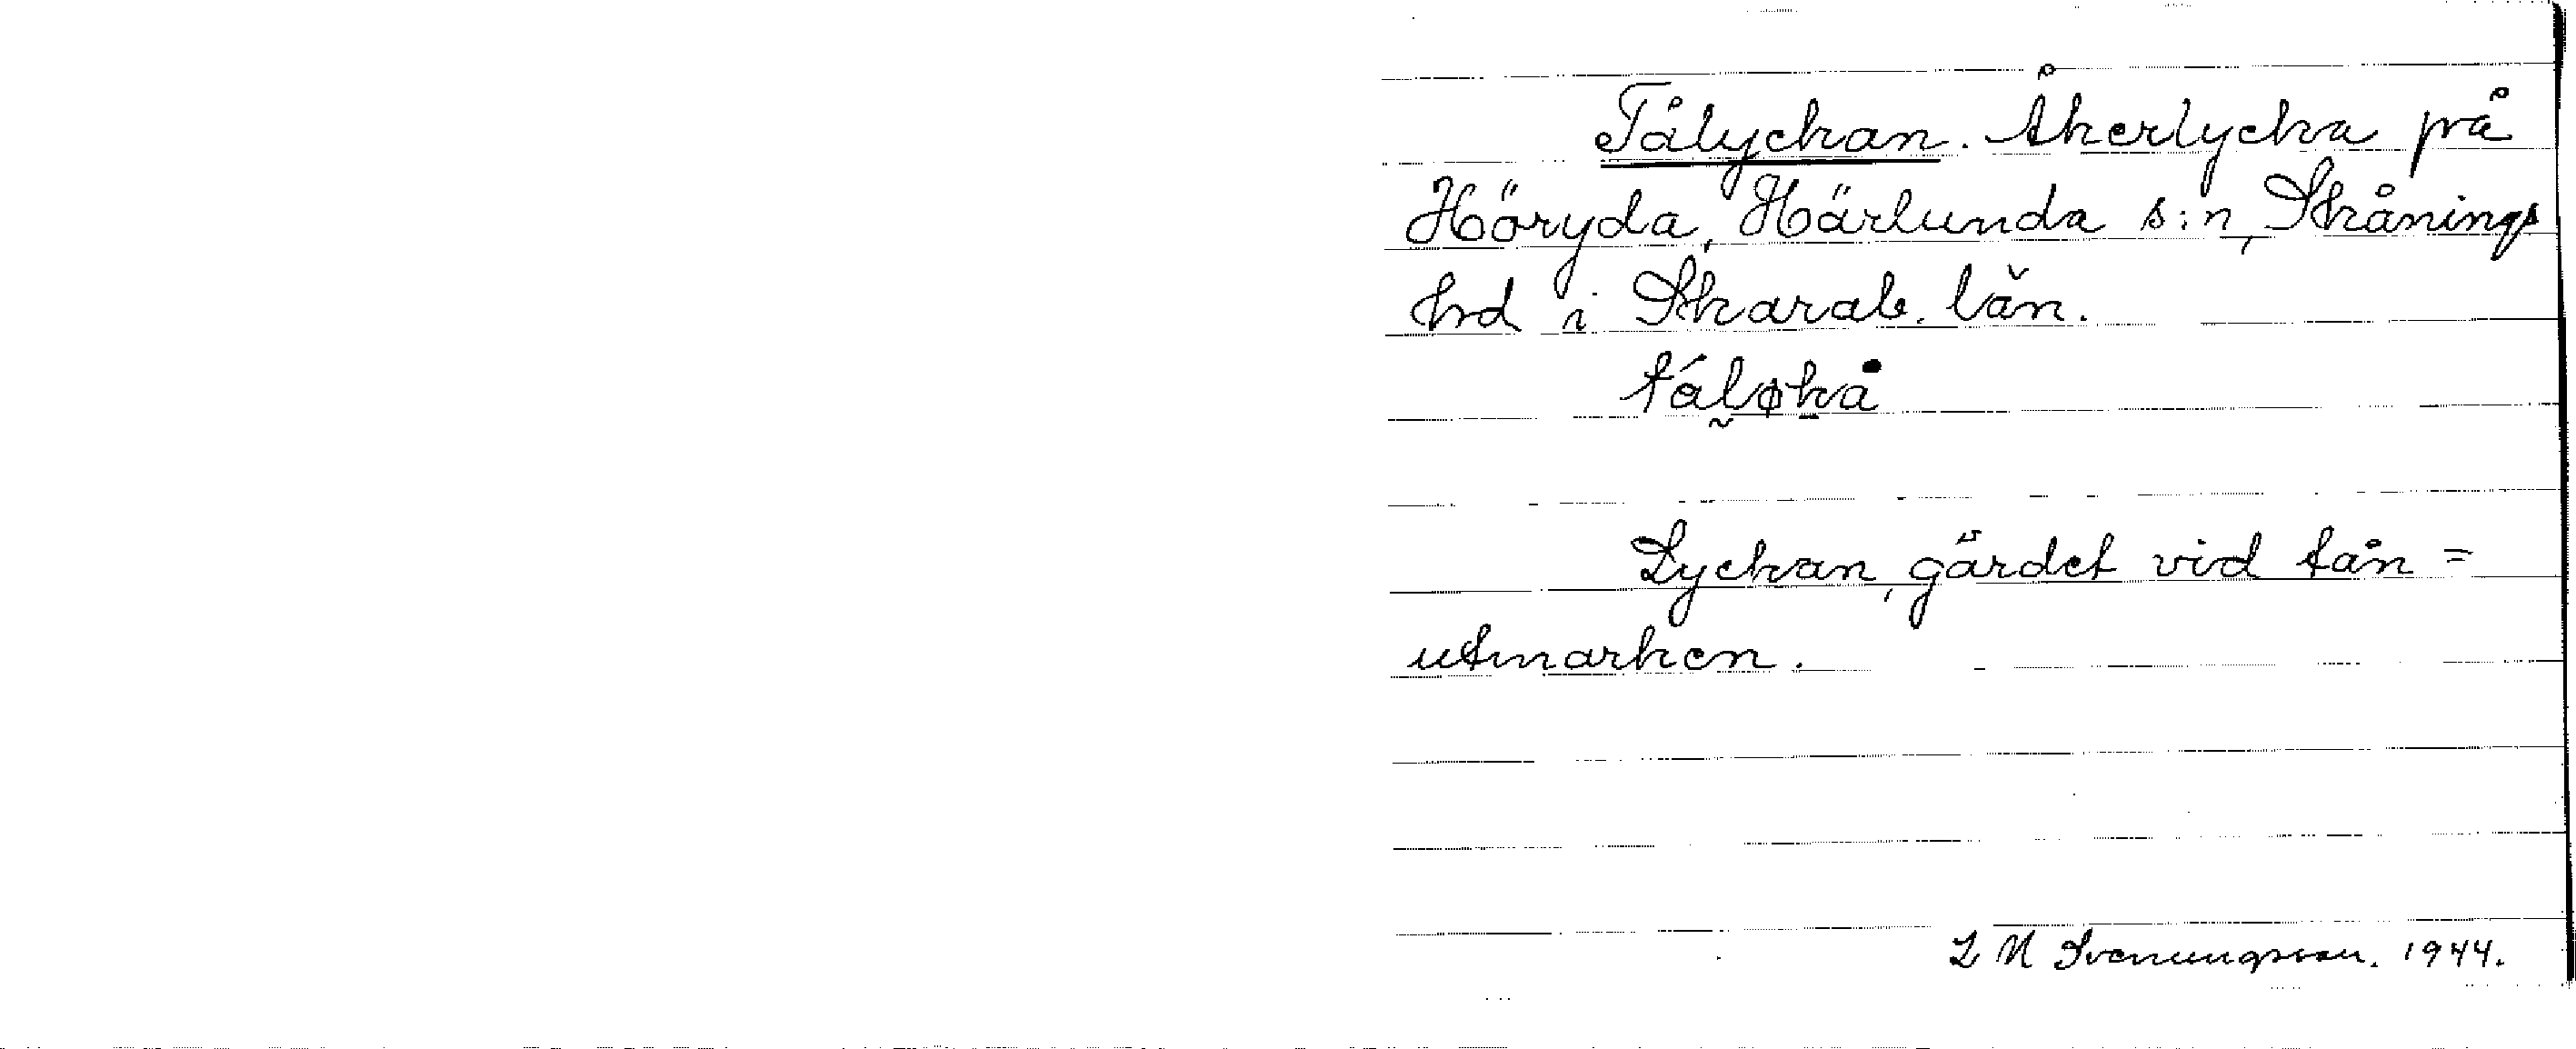 Tålyckan. Åkerlycka på
Höryda, Härlunda s:n, Skånings
hd i Skarab. län.
Lyckan, gärdet vid tån =
utmarken.
L M Svenungsson. 1944.